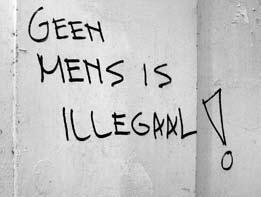 GEEN
MENS IS
ILLEGAAL!